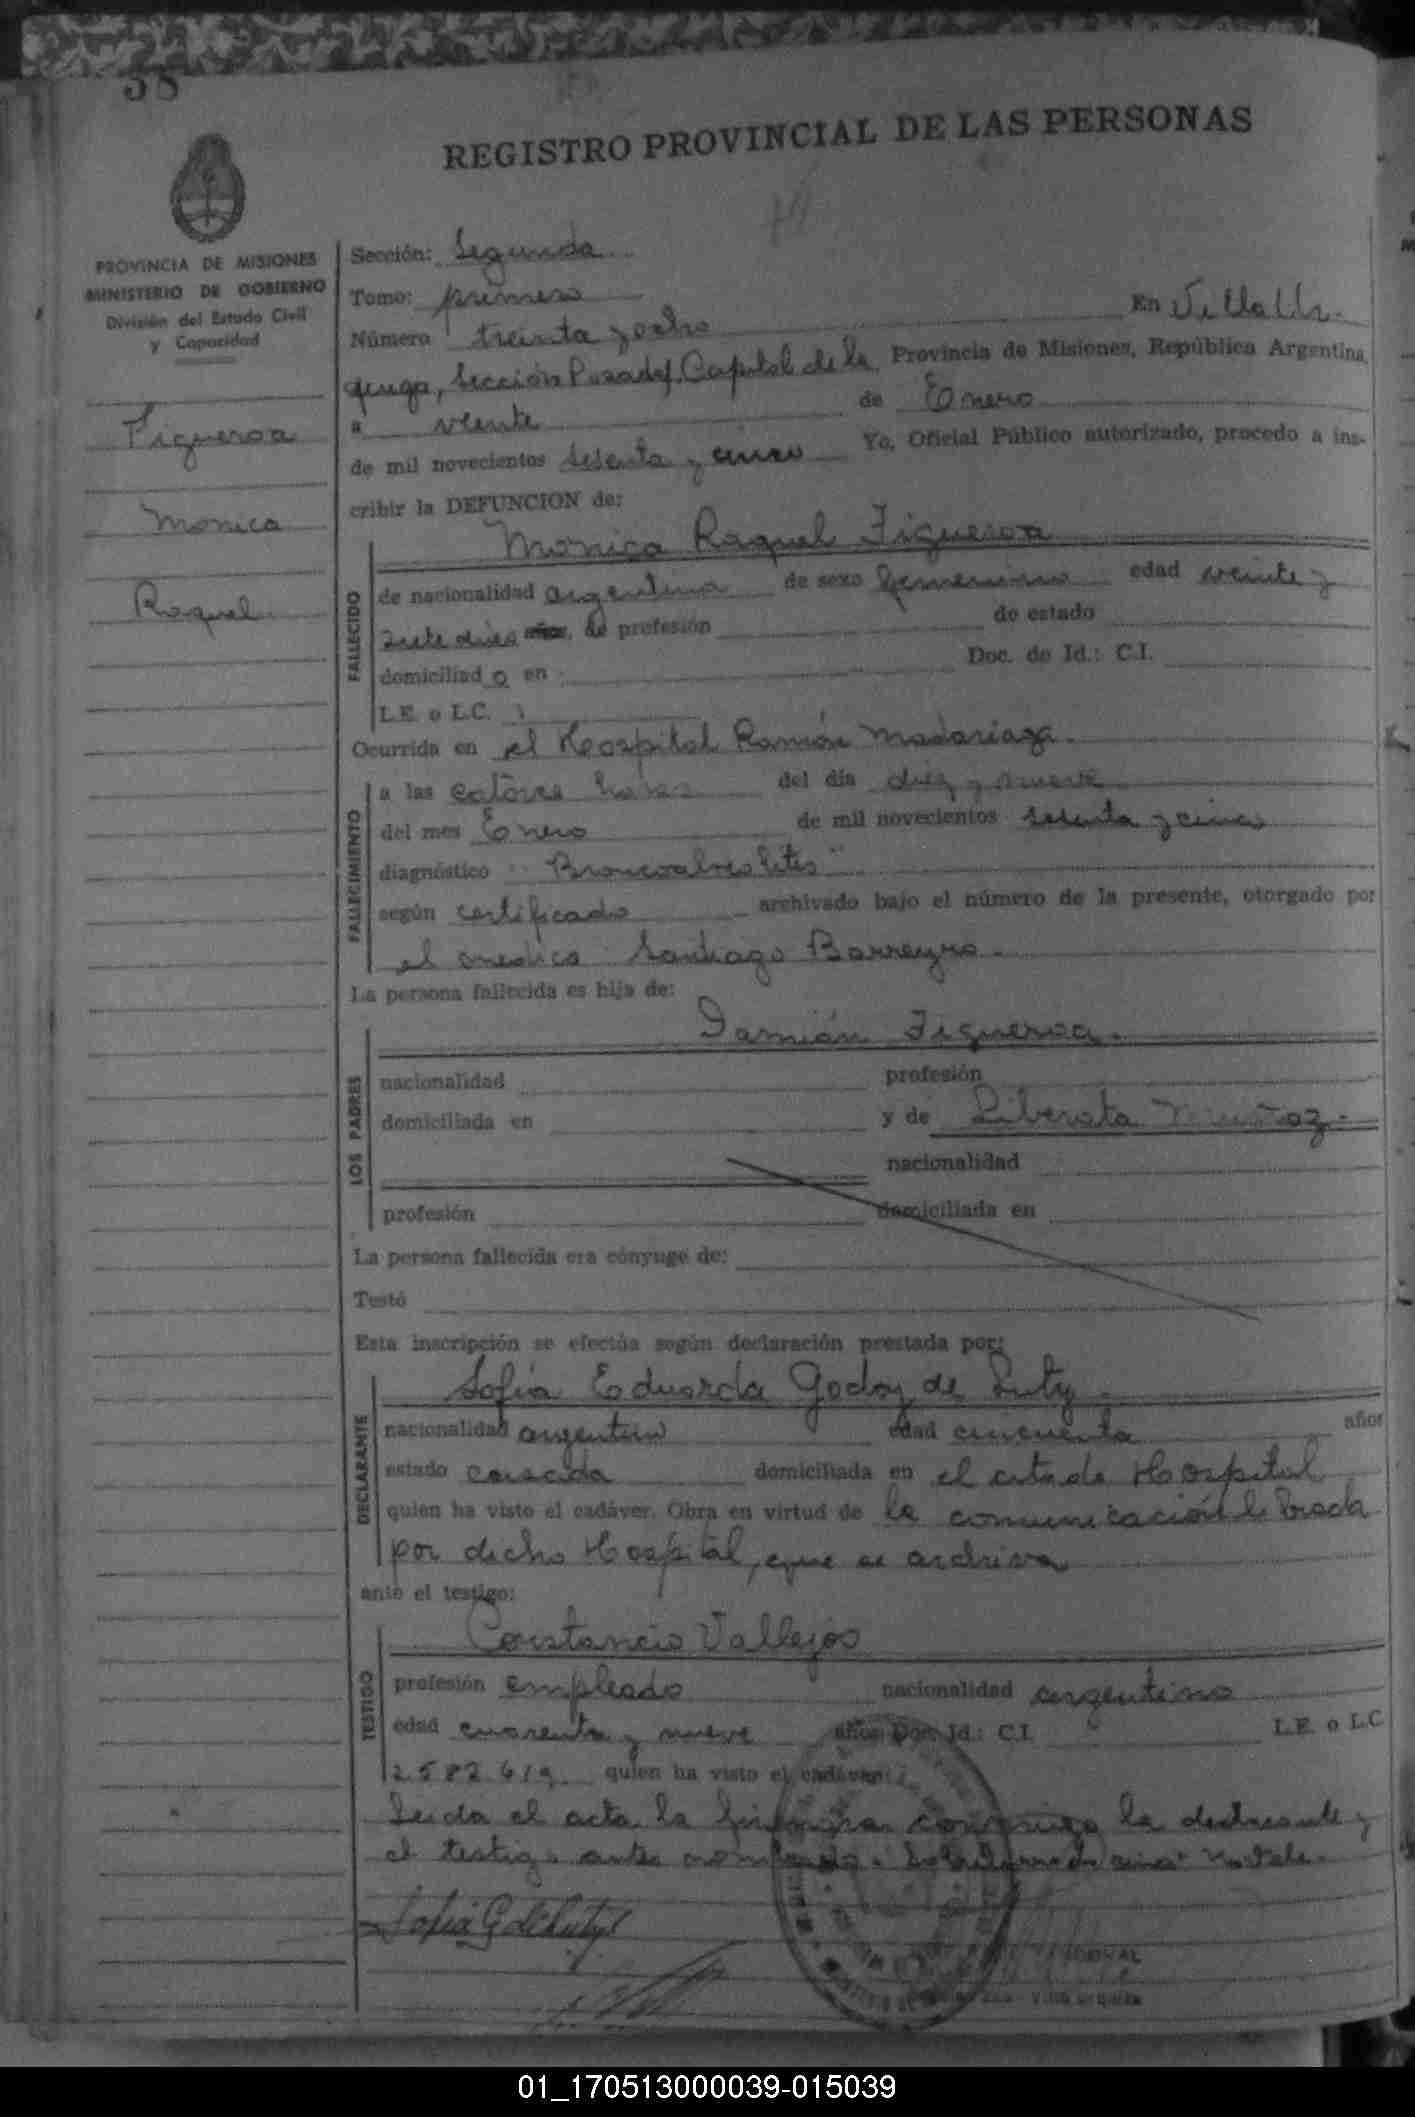 38
REGISTRO PROVINCIAL DE LAS PERSONAS
PROVINCIA DE MISIONES
MINISTERIO DE GOBIERNO
División del Estado Civil
y Capacidad
Figueroa
Monica
Raquel
Sección: Segunda
Tomo: primero En Villa Ur-
Número treinta y ocho
quiza, Sección Posadas, Capital de la Provincia de Misiones, República Argentina,
a veinte de Enero
de mil novecientos sesenta y cinco Yo, Oficial Público autorizado, procedo a ins-
cribir la DEFUNCION de:
Monica Raquel Figueroa
FALLECIDO
de nacionalidad argentina de sexo femenino edad veinte y
siete dias años, de profesión de estado
domiciliad o en Doc. de Id.: C.I.
L.E. o L.C.
Ocurrida en el Hospital Ramón Madariaga.
FALLECIMIENTO
a las catorce horas del día diez y nueve
del mes Enero de mil novecientos sesenta y cinco
diagnóstico "
según certificado archivado bajo el número de la presente, otorgado por
el medico Santiago Barreyro.
La persona fallecida es hija de:
Damián Figueroa.
LOS PADRES
nacionalidad profesión
domiciliada en y de Liberata Muñoz.
nacionalidad
profesión domiciliada en
La persona fallecida era cónyuge de:
Testó
Esta inscripción se efectúa según declaración prestada por:
Sofía Eduarda Godoy de
DECLARANTE
nacionalidad argentina edad cincuenta años
estado casada domiciliada en el citado Hospital
quien ha visto el cadáver. Obra en virtud de la comunicación librada
por dicho Hospital, que se archiva
ante el testigo:
Constancio Vallejos
TESTIGO
profesión empleado nacionalidad argentino
edad cuarenta y nueve años Doc. Id.: C.I. L.E. o L.C
2582619 quien ha visto el cadáver:
Leida el acta la firman conmigo la declarante y
el testigo antes nombrado.
01_170513000039-015039